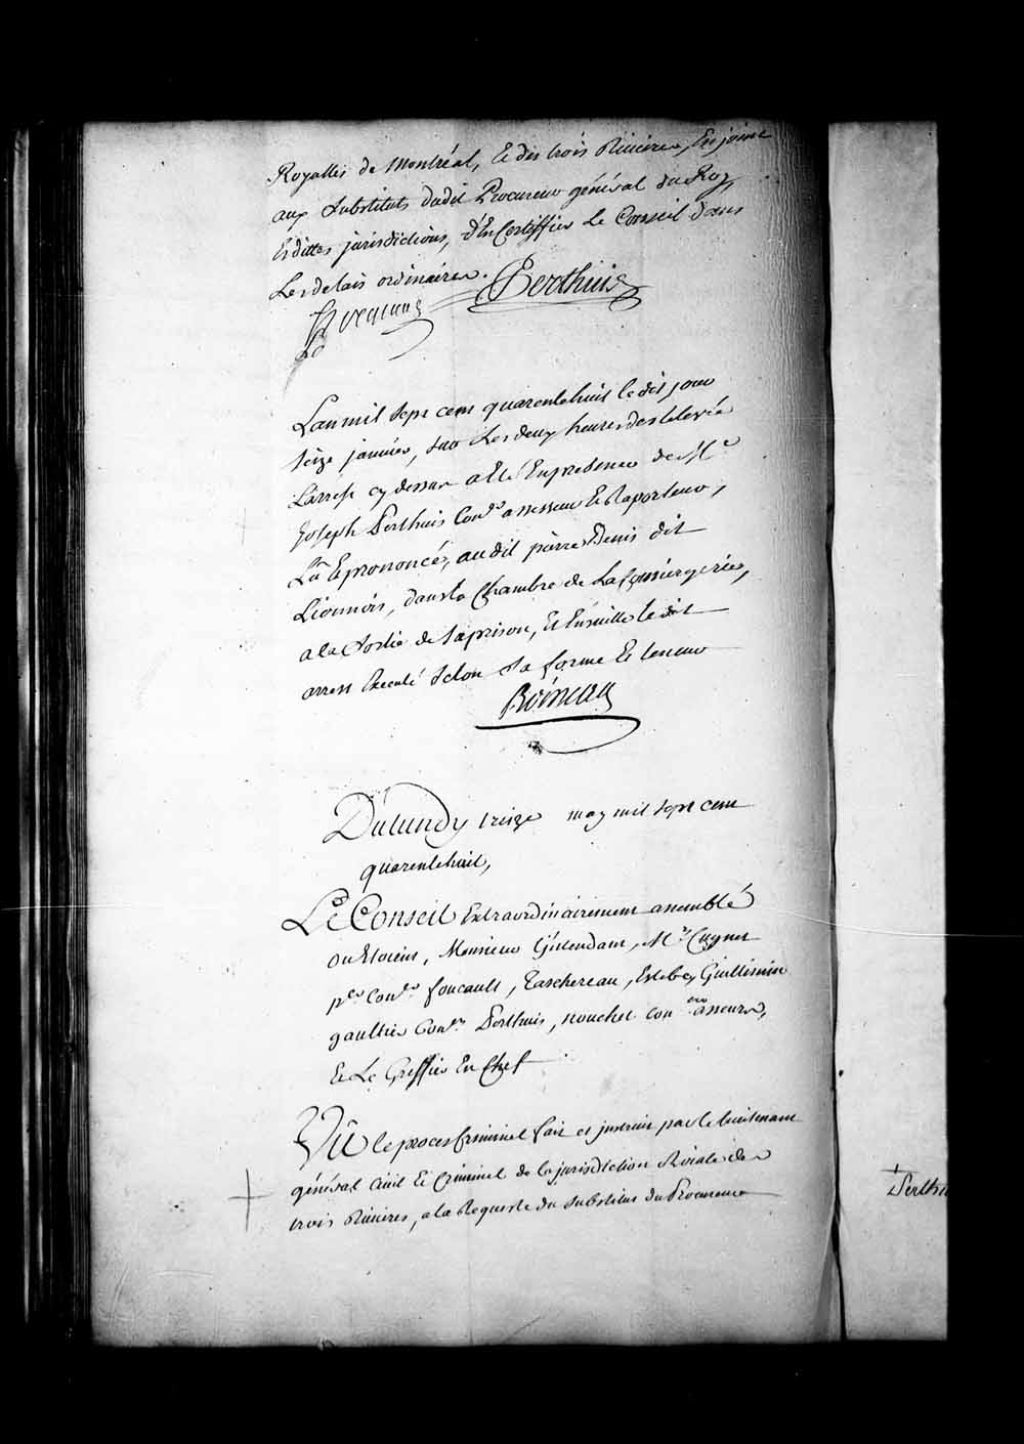 Royalles de Montréal, Et des trois Rivieres, Enjoint
aux Substituts dudit Procureur général du Roy
Esdittes jurisdictions, d'En Certiffier Le Conseil dans
Les delais ordinaires.
Perthuis
L'an mil sept cent quarente huit le dit jour
seize janvier, sur Les deux heures de relevée
L'arrest cy dessus a Eté En presence de Me
Joseph Perthuis Coner assesseur Et Raporteur,
Lu Et prononcé, audit pierre Denis dit
Lionnois, dans la Chambre de La Conciergerie,
a la sortie de sa prison, Et Ensuitte le dit
arrest Executé selon sa forme Et teneur
Boisseau
Du lundy treize may mil sept cent
quarente huit,
Le Conseil Extraordinairement assemblé
ou Etoient, Monsieur L'jntendant, Mrs Cugnet
per Coner foucault, Taschereau, Estebe, Guillimin
gaultier Coners Perthuis, nouchet Coners asseurs,
Et Le Greffier En Chef
Vû le procès Criminel fait et jnstruit par le lieutenant
général Civil Et Criminel de la jurisdiction Roiale des
trois Rivieres, a la Requeste du substitut du Procureur
Perthu